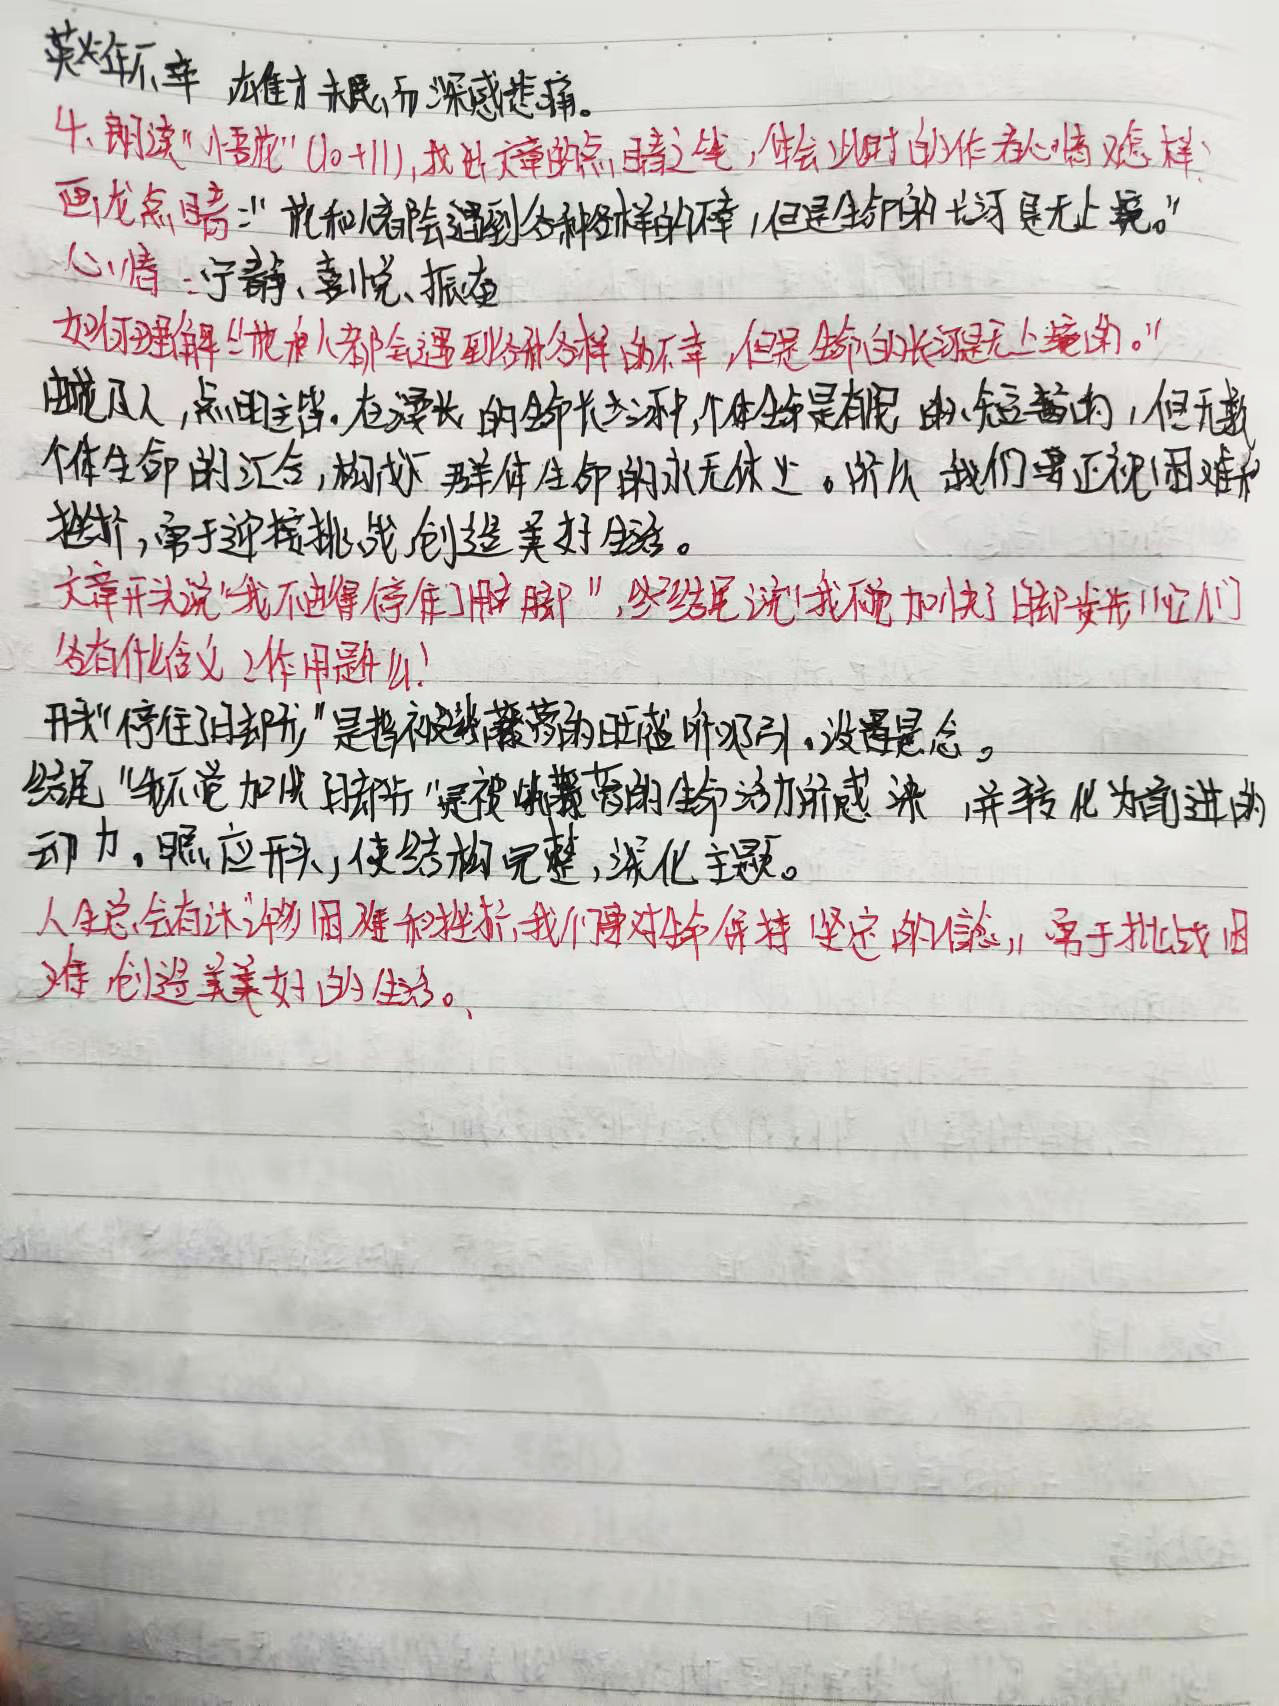 英年不幸 雄才未展,而深感悲痛。
4、朗读"悟花"(10+11),找出文章的点睛之笔,体会此时的作者心情又怎样?
画龙点睛:"花和人都会遇到各种各样的不幸,但是生命的长河是无止境。"
心情:宁静、喜悦、振奋
如何理解"花和人都会遇到各种各样的不幸,但是生命的长河是无止境的。"
由花及人,点明主旨。在漫长的生命长河中,个体生命是有限的、短暂的,但无数
个体生命的汇合,构成了群体生命的永无休止。所以我们要正视困难和
挫折,勇于迎接挑战,创造美好生活。
文章开头说"我不由得停住了脚",结尾说"我不觉加快了脚步",它们
各有什么含义?作用是什么?
开头"停住了脚步"是指被紫藤萝的旺盛所吸引。设置悬念。
结尾"我不觉加快脚步"是被紫藤萝的生命活力所感染,并转化为前进的
动力。照应开头,使结构完整,深化主题。
人生总会有许多困难和挫折,我们要对生命保持坚定的信念,勇于挑战困
难 创造美好的生活。